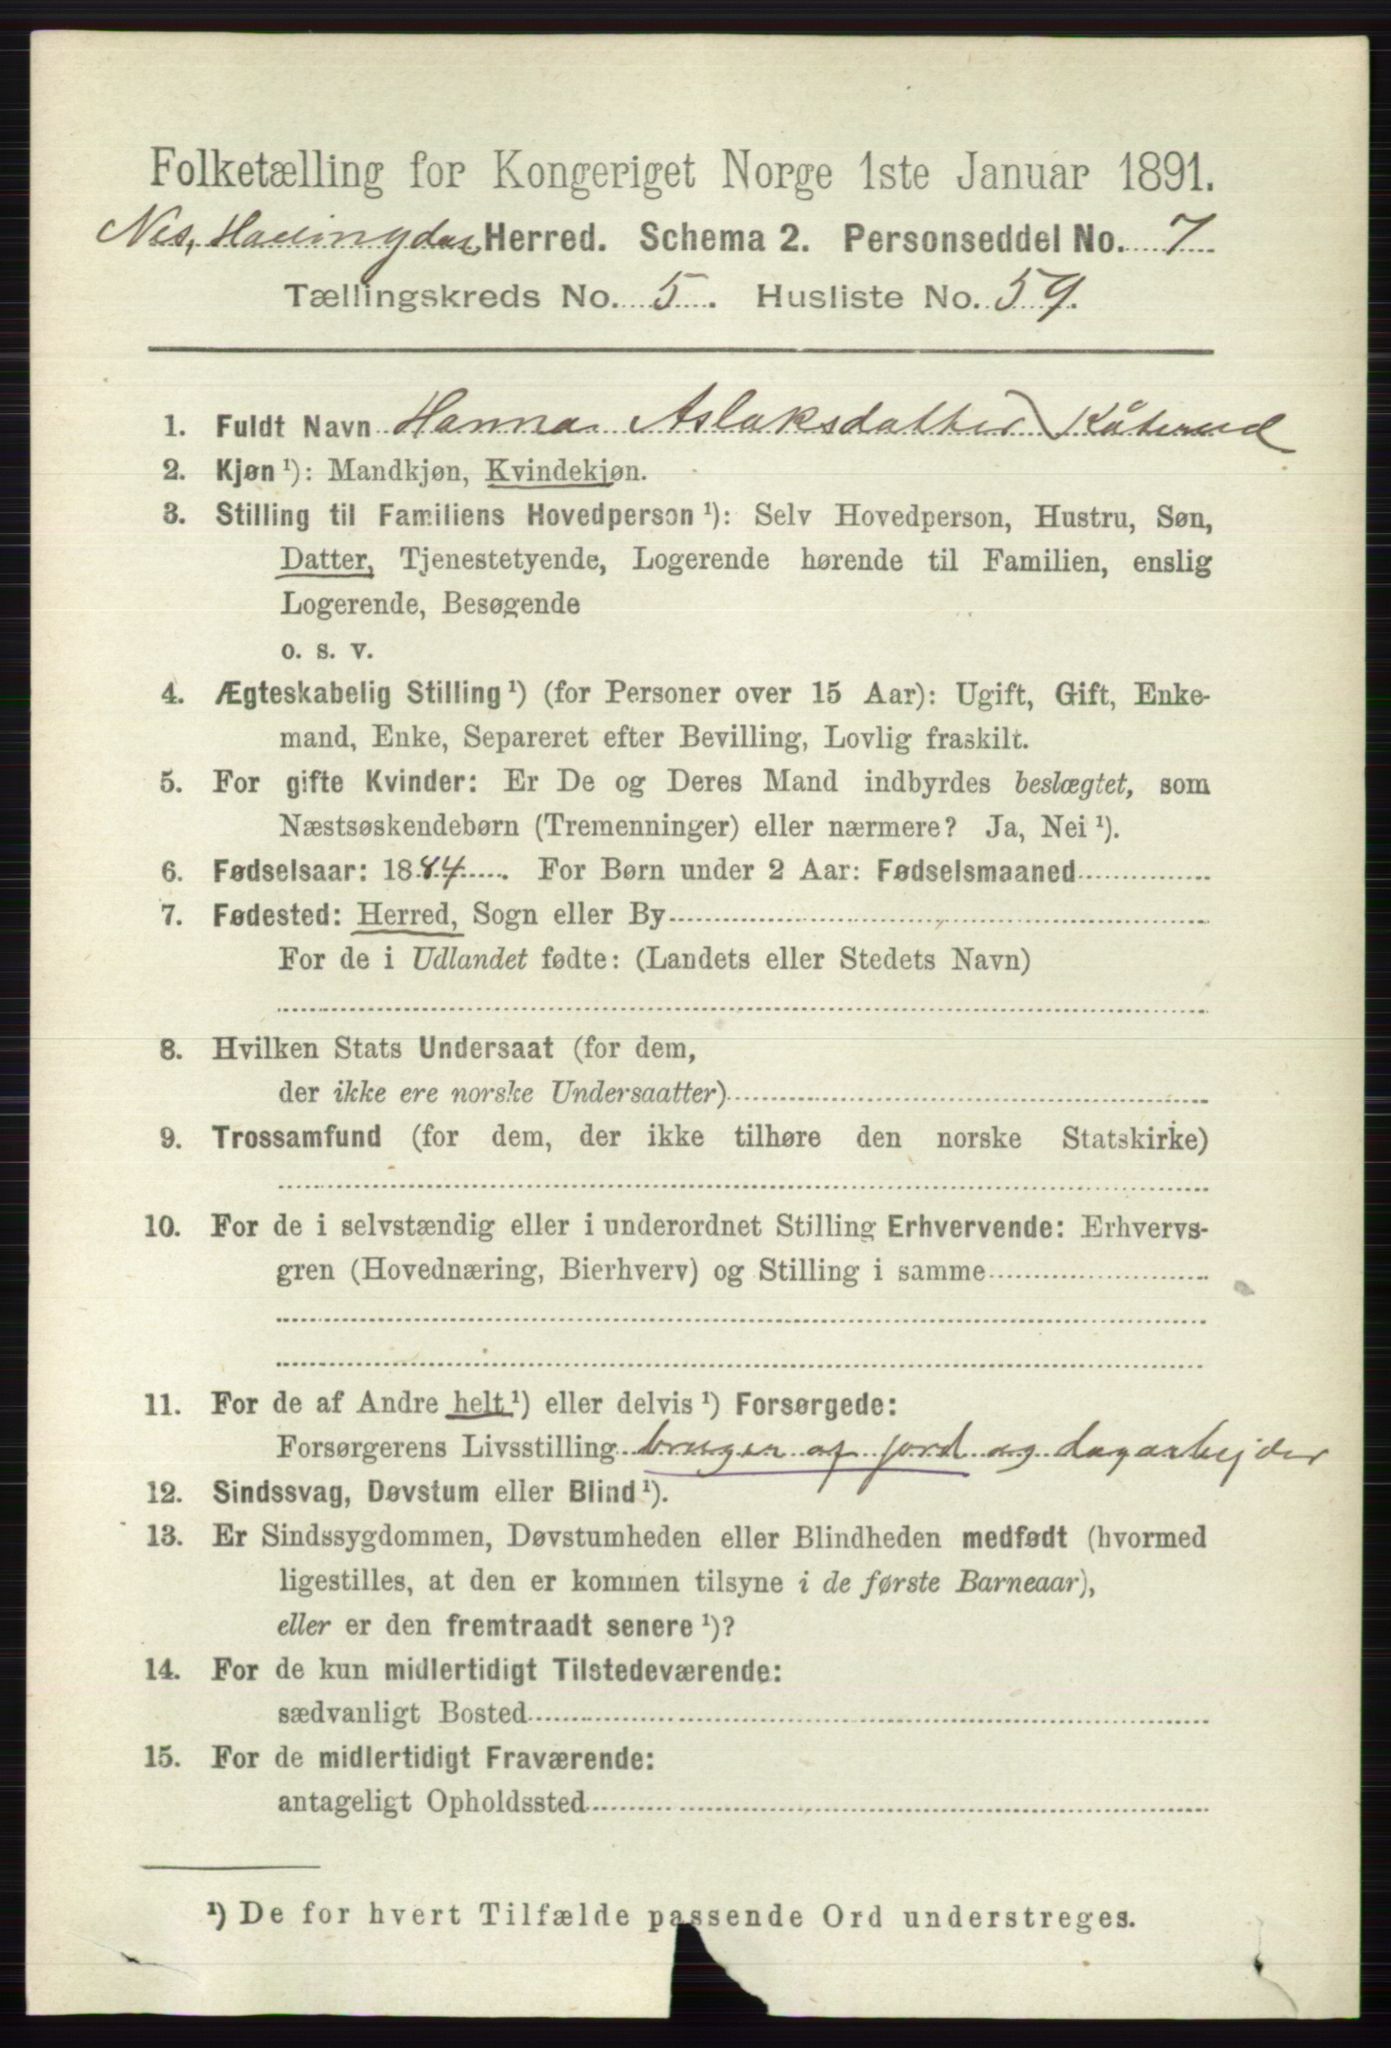 Folketælling for Kongeriget Norge 1ste Januar 1891.
Nes, Hallingdal Herred. Schema 2. Personseddel No. 7
Tællingskreds No. 5. Husliste No. 59.
1. Fuldt Navn Hanna Aslaksdatter Kåterud
2. Kjøn ¹): Mandkjøn, Kvindekjøn.
3. Stilling til Familiens Hovedperson ¹): Selv Hovedperson, Hustru, Søn,
Datter, Tjenestetyende, Logerende hørende til Familien, enslig
Logerende, Besøgende
o. s. v.
4. Ægteskabelig Stilling ¹) (for Personer over 15 Aar): Ugift, Gift, Enke-
mand, Enke, Separeret efter Bevilling, Lovlig fraskilt.
5. For gifte Kvinder: Er De og Deres Mand indbyrdes beslægtet, som
Næstsøskendebørn (Tremenninger) eller nærmere? Ja, Nei ¹).
6. Fødselsaar: 1884. For Børn under 2 Aar: Fødselsmaaned
7. Fødested: Herred, Sogn eller By
For de i Udlandet fødte: (Landets eller Stedets Navn)
8. Hvilken Stats Undersaat (for dem,
der ikke ere norske Undersaatter)
9. Trossamfund (for dem, der ikke tilhøre den norske Statskirke)
10. For de i selvstændig eller i underordnet Stilling Erhvervende: Erhvervs-
gren (Hovednæring, Bierhverv) og Stilling i samme
11. For de af Andre helt ¹) eller delvis ¹) Forsørgede:
Forsørgerens Livsstilling bruger af jord og dagarbejder
12. Sindssvag, Døvstum eller Blind ¹).
13. Er Sindssygdommen, Døvstumheden eller Blindheden medfødt (hvormed
ligestilles, at den er kommen tilsyne i de første Barneaar),
eller er den fremtraadt senere ¹)?
14. For de kun midlertidigt Tilstedeværende:
sædvanligt Bosted
15. For de midlertidigt Fraværende:
antageligt Opholdssted
¹) De for hvert Tilfælde passende Ord understreges.